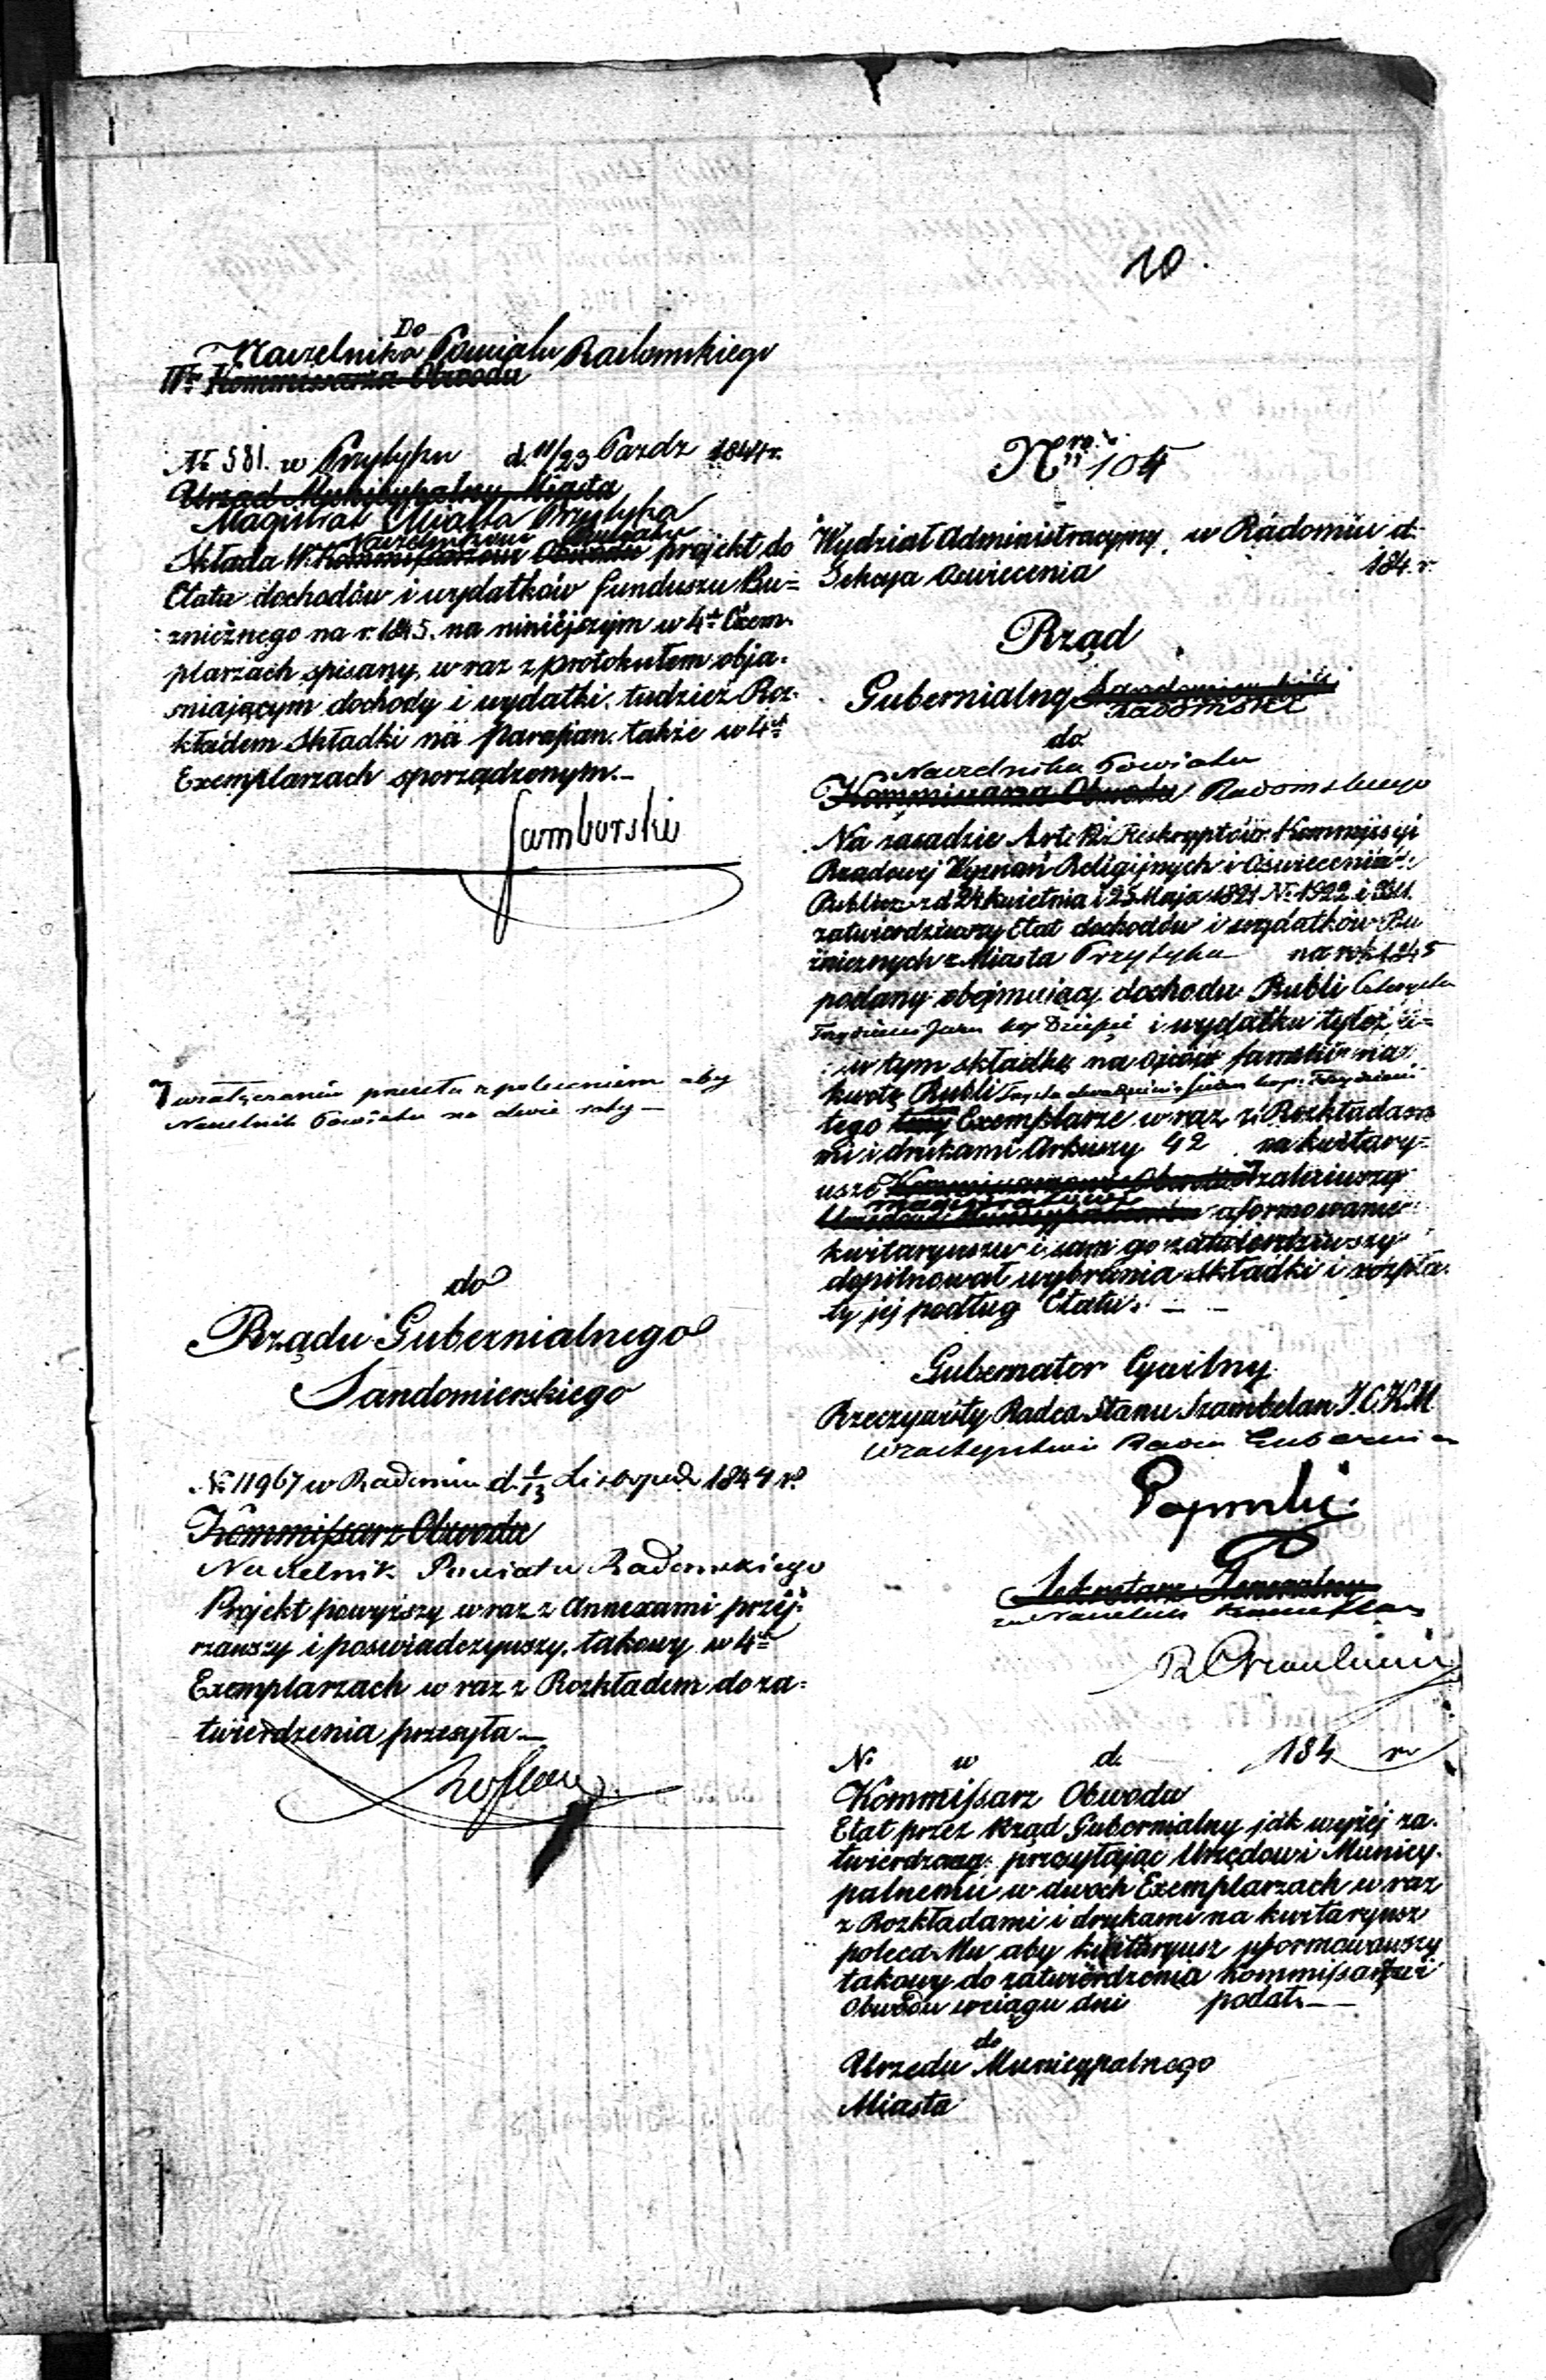 10.
Do
Naczelnika Powiatu Radomskiego
Wgo Kommissarza Obwodu
№ 581. w Przytyku d. 11/23 Pazdz 1844 r.
Urząd Municypalny Miasta
Magistrat Miasta Przytyka
Naczelnikowi Powiatu
Składa W. Kommissarzowi Obwodu projekt do
Etatu dochodów i wydatków funduszu Bu-
źnicznego na r. 1845. na niniejszym w 4ch Exem-
plarzach spisany, w raz z protokułem obja-
śniającym dochody i wydatki, tudzież Roz-
kładem Składki na Parafian. także w 4ch
Exemplarzach sporządzonym.—
Samborski
w załączeniu poleceniem aby
Naczelnik Powiatu na dwie raty —
do
Rządu Gubernialnego
Sandomierskiego
№ 11967 w Radomiu d. 1/13 Listopada 1844 r.
Kommissarz Obwodu
Naczelnik Powiatu Radomskiego
Projekt powyższy w raz z Annexami przej-
rzawszy i poswiadczywszy, takowy w 4ch
Exemplarzach w raz z Rozkładem do za-
twierdzenia przesyła.—
Nro 104
Wydział Administracyjny w Radomiu d.
Sekcya Oswiecenia 184. r.
Rząd
Gubernialny Sandomierski
Radomski
do
Naczelnika Powiatu
Kommissarza Obwodu Radomskiego
Na zasadzie Reskryptów Kommissyi
Rządowej Wyznań Religijnych i Oświecenia
Publicz. z d. 24 Kwietnia i 25 Maja 1821 № 1922 i
zatwierdziwszy Etat dochodów i wydatków Bu
źnicznych z Miasta Przytyka na rok 1845
podany obejmujący dochodu Rubli
kop i wydatku tyleż
w tym składkę na familii na
kwotę Rubli
tego Exemplarze w raz z Rozkłada
mi i drukami Arkuszy 42 na kwitary-
usze Kommissarzowi Obwodu zaleciwszy
Magistratowi
Urzędowi Municypalnemu uformowanie
kwitaryuszu i sam go zatwierdziwszy
dopilnował wybrania składki i rozpła-
ty jej podług Etatu. — —
Gubernator Cywilny
Rzeczywisty Radca Stanu Szambelan J.C.K.M
w zastępstwie Radca Gubernialny
Sekretarz Generalny
za Naczelnik Kancellaryi
№ w d. 184 r
Kommissarz Obwodu
Etat przez Rząd Gubernialny jak wyżej za-
twierdzony przesyłając Urzędowi Municy-
palnemu w dwoch Exemplarzach w raz
z Rozkładami i drukami na kwitaryusz
poleca Mu aby kwitaryusz uformowawszy
takowy do zatwierdzenia Kommissarzowi
Obwodu w ciągu dni podał. —
do
Urzędu Municypalnego
Miasta